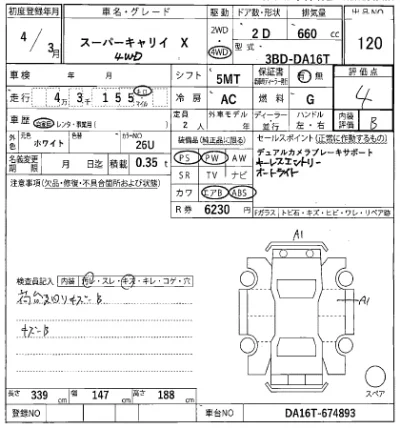 初度登録年月 車名・グレード 駆動 ドア数・形状 排気量 出品NO
4/3月 スーパーキャリイ X 4WD 2WD・4WD 2D 660cc 120
型式 3BD-DA16T
車検 年 月 シフト 5MT 保証書 有 無 評価点
走行 4万3千155 キロ マイル 冷房 AC 燃料 G 4
車歴 自家用・レンタ・事業用( ) 定員 2人 外車モデル年 年 ディーラー・並行 ハンドル 左・右 内装評価 B
外色 元色 ホワイト 色替 カラーNO 26U 装備品(純正品に限る) セールスポイント(正常に作動するもの)
名義変更期限 月 日迄 積載 0.35t PS PW AW デュアルカメラブレーキサポート
注意事項(欠品・修復・不具合箇所および状態) SR TV ナビ キーレスエントリー
カワ エアB ABS オートライト
R券 6230円 Fガラス トビ石・キズ・ヒビ・ワレ・リペア跡
A1
検査員記入 内装 汚レ・スレ・キズ・キレ・コゲ・穴
荷台回りキズB
A1
キズB
スペア
長さ 339cm 幅 147cm 高さ 188cm
登録NO 車台NO DA16T-674893